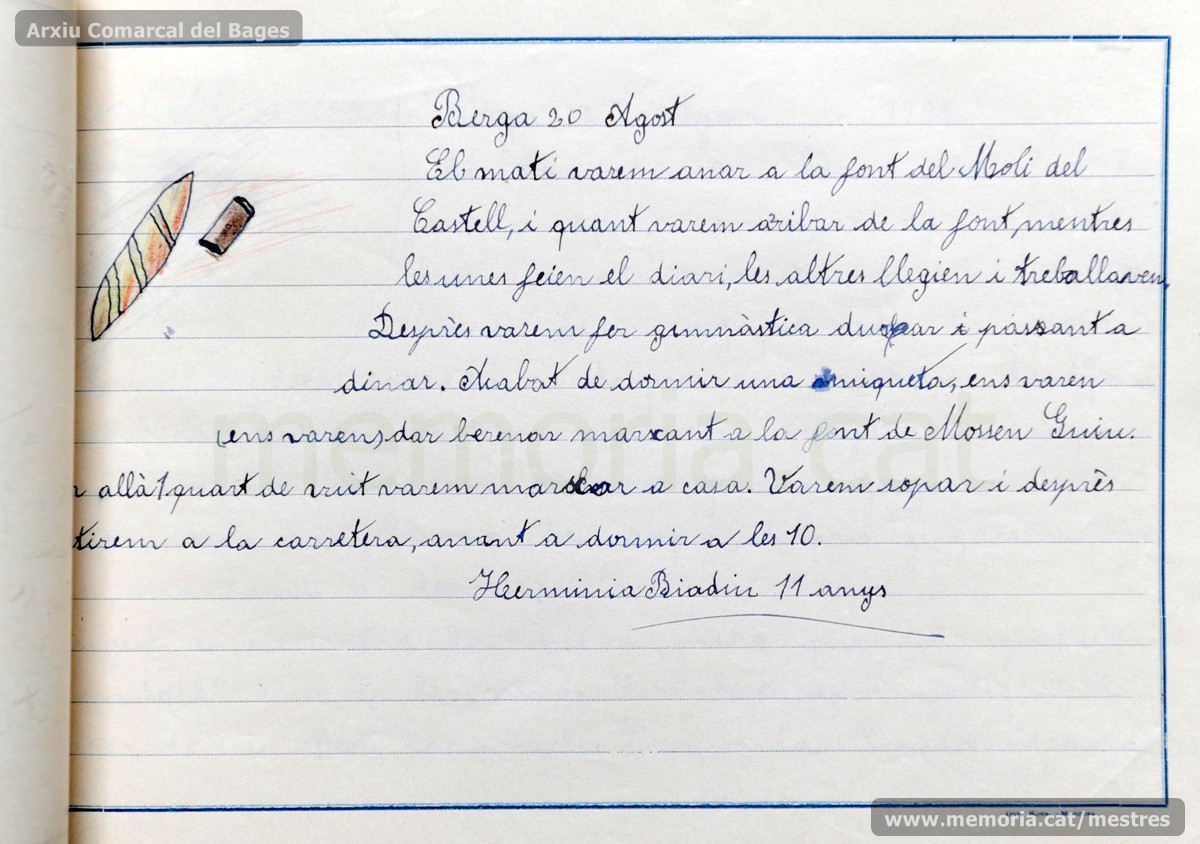 Arxiu Comarcal del Bages
Berga 20 Agost
El matí varem anar a la font del Moli del
Castell, i quant varem aribar de la font, mentres
les unes feien el diari, les altres llegien i treballaven.
Desprès varem fer gimnàstica i passant a
dinar. Acabat de dormir una miqueta, ens varen
(ens varen) dar berenar marxant a la font de Mossen Guiu.
allà 1 quart de vuit varem marxar a casa. Varem sopar i desprès
tirem a la carretera, anant a dormir a les 10.
Herminia Biadiu 11 anys
memoria.cat
www.memoria.cat/mestres